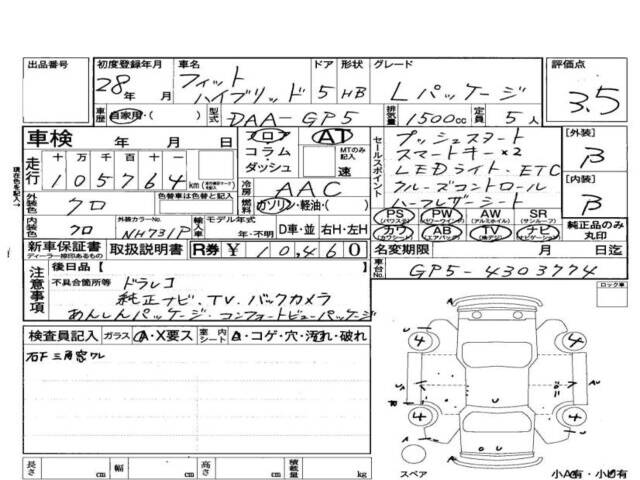 出品番号 初度登録年月 車名 ドア 形状 グレード 評価点
28年 月 フィットハイブリッド 5 HB Lパッケージ 3.5
車歴 自家用・( ) 型式 DAA-GP5 排気量 1500cc 定員 5人
車検 年 月 日 フロア AT プッシュスタート [外装]
走行 十 万 千 百 十 一 コラム・ダッシュ MTのみ記入 速 セールスポイント スマートキー×2 B
105764 km LEDライト、ETC
現在色を記入→
外装色 クロ 色替車は色替と記入 冷房 AAC クルーズコントロール [内装]
燃料 ガソリン・軽油・( ) ハーフレザーシート B
内装色 クロ 外装カラーNo. NH731P 輸入車 モデル年式 年・不明 D車・並 右H・左H
PS (パワステ) PW (パワーウインドウ) AW (アルミホイル) SR (サンルーフ) 純正品のみ丸印
カワ (カワシート) AB (エアバッグ) TV ナビ (ナビゲーション)
新車保証書 ディーラー捺印あるもの 取扱説明書 R券 ¥10,460 名変期限 月 日迄
注意事項 後日品【 】 車台No. GP5-4303774
不具合箇所等 ドラレコ ロック車
純正ナビ、TV、バックカメラ
あんしんパッケージ・コンフォートビューパッケージ
検査員記入 ガラス A・X要ス 室内シート A・コゲ・穴・汚れ・破れ
石F 三角窓ワレ
U 4 4 U
U A U
4 4
U U
長さ cm 幅 cm 高さ cm 積載量 kg スペア 小A有・小U有